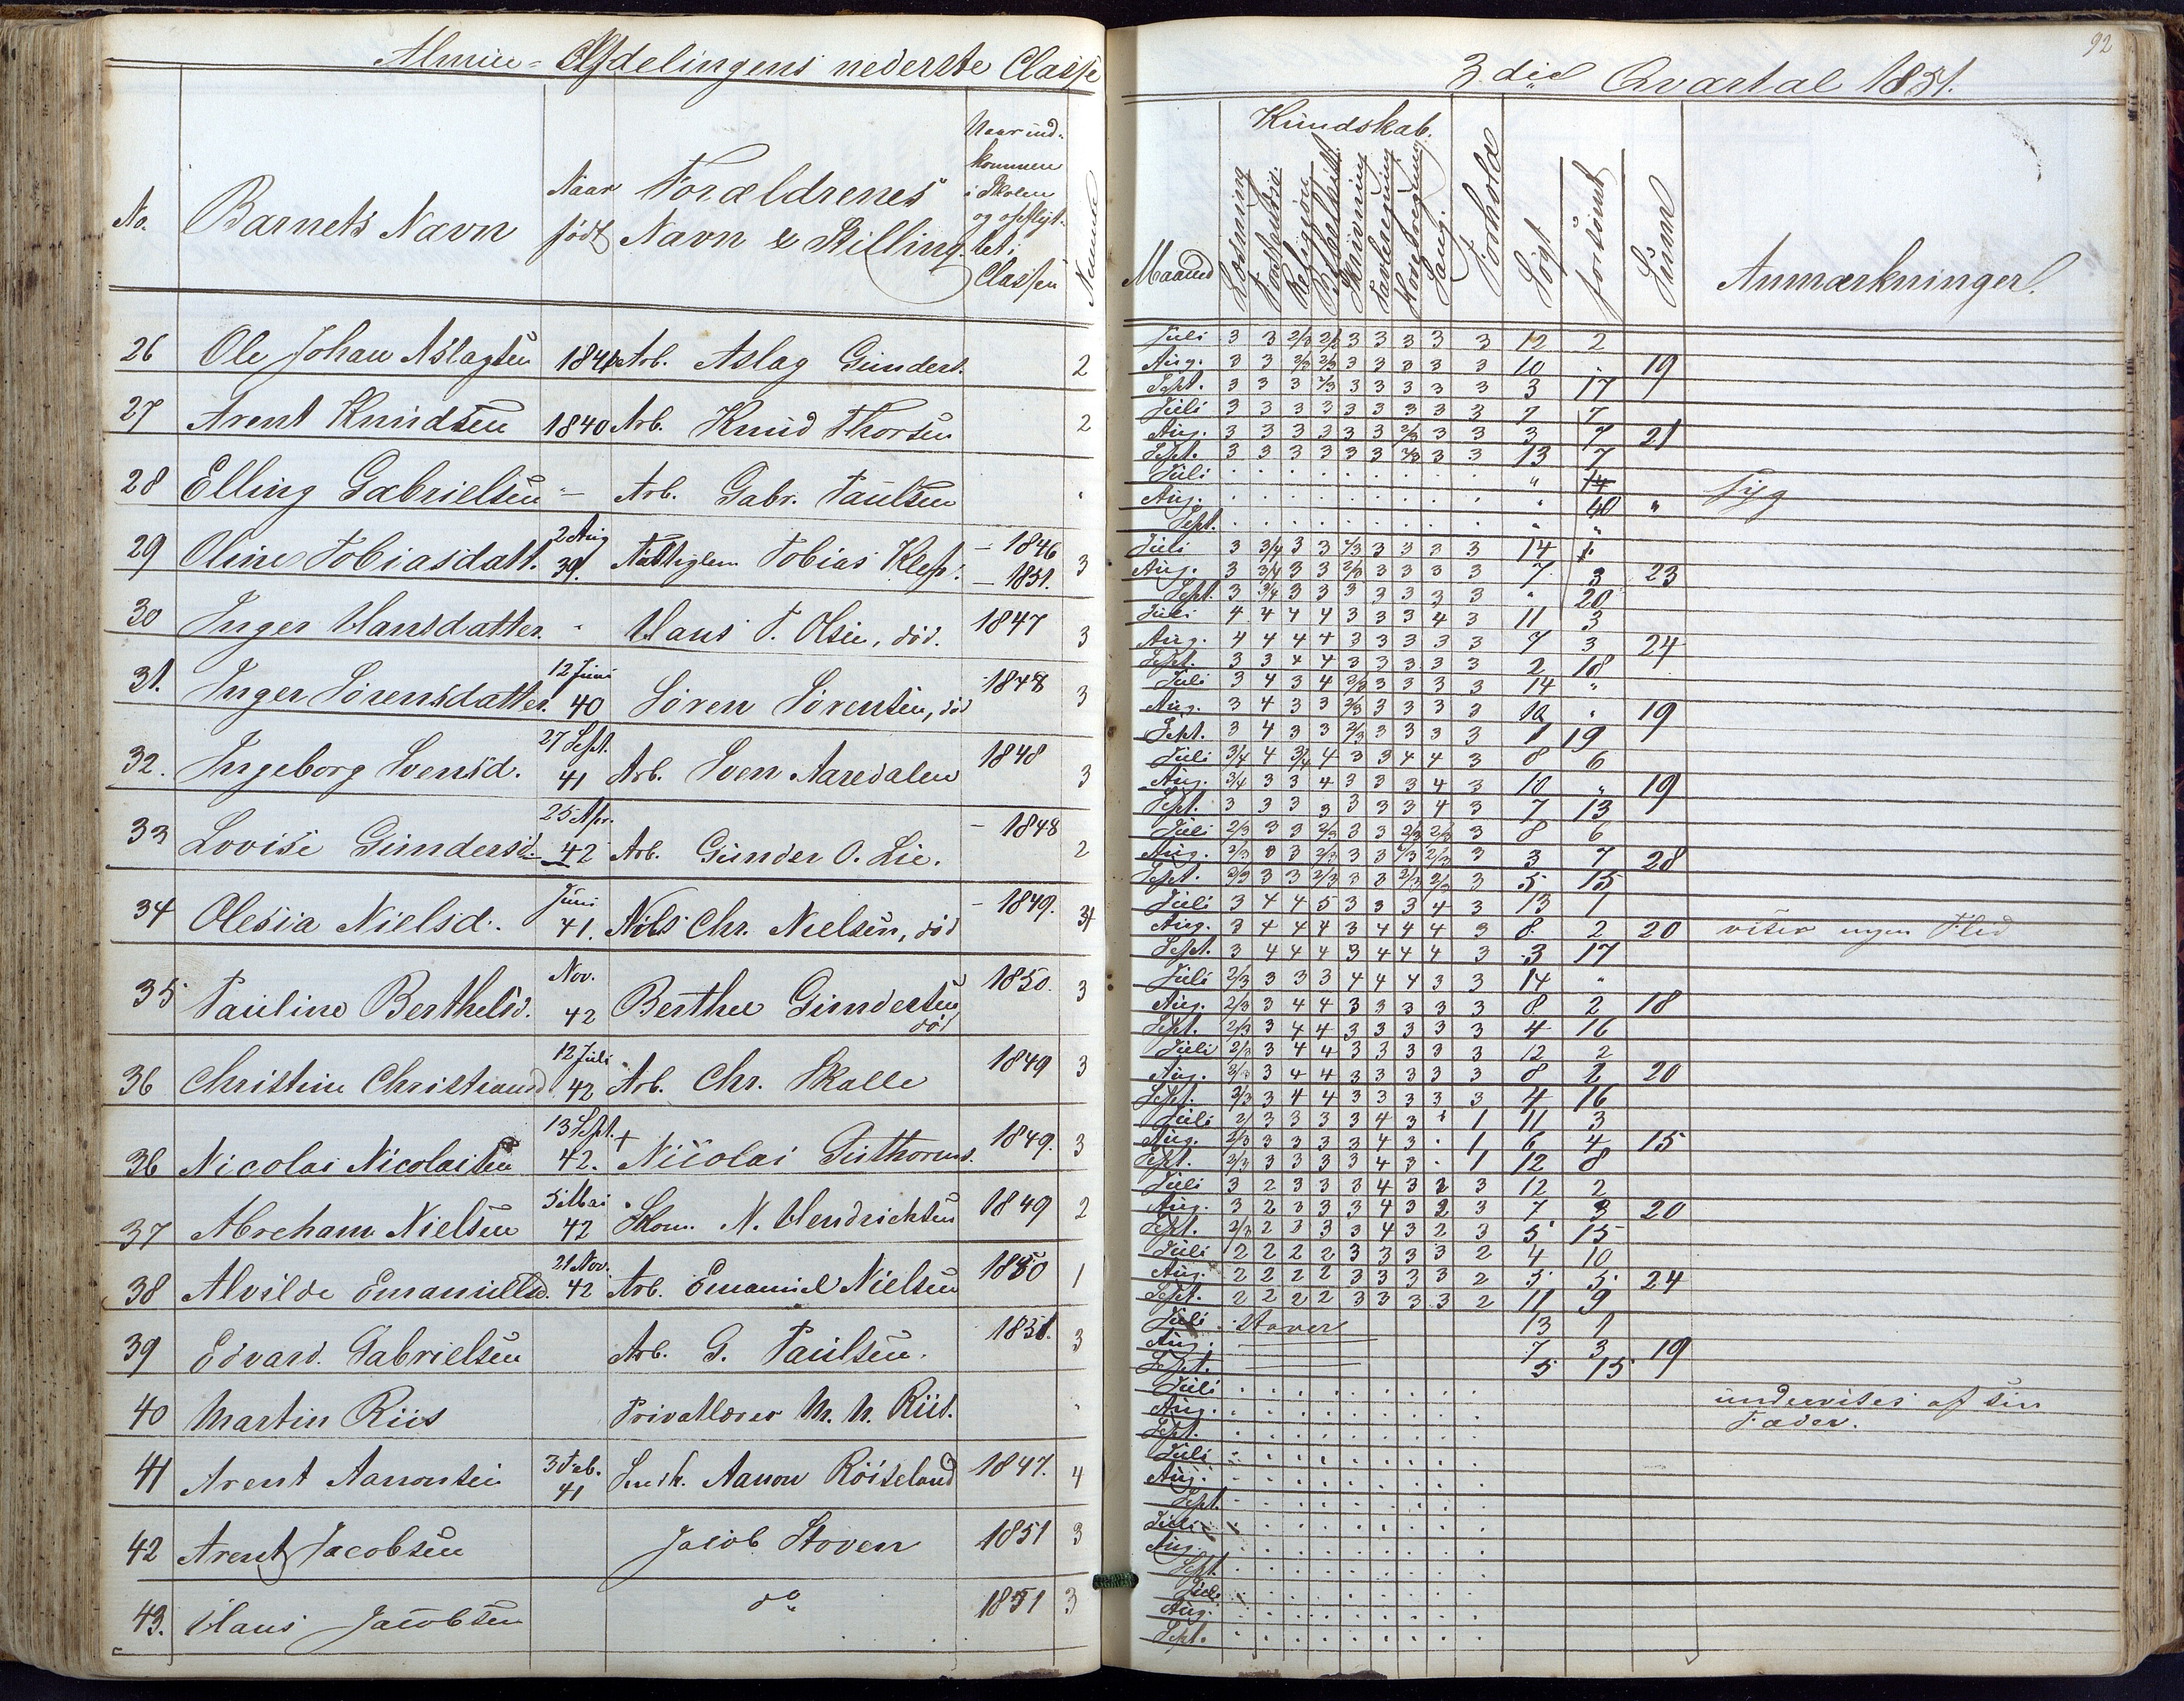 Almue-Afdelingens nederste Classe
No. Barnets Navn Naar født Forældrenes Navn & Stilling. Naar ind-kommen i Skolen og opflyt-tet i Classen
26 Ole Johan Aslagsen 1841 Arb. Aslag Gunders. 2
27 Arent Knudsen 1840 Arb. Knud Thorsen 2
28 Elling Gabrielsen - Arb. Gabr. Paulsen
29 Oline Tobiasdatt. 2 Aug 39. Fattiglem Tobias Klep. - 1846 - 1851. 3
30 Inger Hansdatter - Hans T. Olsen, død. 1847 3
31. Inger Sørensdatter. 12 Juni 40 Søren Sørensen, død 1848 3
32. Ingeborg Svensd. 27 Sept. 41 Arb. Sven Aaredalen 1848 3
33 Lovise Gundersd. 25 Apr. 42 Arb. Gunder O. Lie. - 1848 2
34 Olesia Nielsd. Juni 41. Nils Chr. Nielsen, død - 1849.
35 Pauline Berthelsd. Nov. 42 Berthel Gundersen død 1850. 3
36 Christine Christiansd 12 Juli 42 Arb. Chr. Skalle 1849 3
36 Nicolai Nicolaisen 13 Sept. 42. + Nicolai Guthorms. 1849. 3
37 Abreham Nielsen 5 Mai 42 Skom. N. Hendrichsen 1849 2
38 Alvilde Emanuelsd. 21 Nov. 42 Arb. Emanuel Nielsen 1850 1
39 Edvard Gabrielsen Arb. G. Paulsen. 1851. 3
40 Martin Riis Privatlærer M. N. Riis.
41 Arent Aanonsen 3 Feb. 41 Snedk. Aanon Røiseland 1847. 4
42 Arent Jacobsen Jacob Stoven 1851 3
43. Hans Jacobsen do 1851 3
92
3die Qvartal 1851.
Kundskab.
Maaned Læsning Forstandsø. Religion Bibelhist. Skrivning Tavleregning Hovedregning Sang. Forhold Søgt forsømt Sum Anmærkninger.
Juli 3 3 2/3 2/3 3 3 3 3 3 12 2
Aug. 3 3 2/3 2/3 3 3 3 3 3 10 . 19
Sept. 3 3 3 2/3 3 3 3 3 3 3 17
Juli 3 3 3 3 3 3 3 3 3 7 7
Aug. 3 3 3 3 3 3 2/3 3 3 3 7 21
Sept. 3 3 3 3 3 3 2/3 3 3 13 7
Juli . . . . . . . . . " 14 syg
Aug. . . . . . . . . . " "
Sept. . . . . . . . . . " "
Juli 3 3/4 3 3 2/3 3 3 3 3 14
Aug. 3 3/4 3 3 2/3 3 3 3 3 7 3 23
Sept. 3 3/4 3 3 3 3 3 3 3 " 20
Juli 4 4 4 4 3 3 3 4 3 11 3
Aug. 4 4 4 4 3 3 3 3 3 7 3 24
Sept. 3 3 4 4 3 3 3 3 3 2 18
Juli 3 4 3 4 2/3 3 3 3 3 14 "
Aug. 3 4 3 3 2/3 3 3 3 3 10 " 19
Sept. 3 4 3 3 2/3 3 3 3 3 1 19
Juli 3/4 4 3/4 4 3 3 4 4 3 8 6
Aug. 3/4 3 3 4 3 3 3 4 3 10 " 19
Sept. 3 3 3 3 3 3 3 4 3 7 13
Juli 2/3 3 3 2/3 3 3 2/3 2/3 3 8 6
Aug. 2/3 3 3 2/3 3 3 2/3 2/3 3 3 7 28
Sept. 2/3 3 3 2/3 3 3 2/3 2/3 3 5 15
Juli 3 4 4 5 3 3 3 4 3 13 1
Aug. 3 4 4 4 3 4 4 4 3 8 2 20 viser ingen Flid
Sept. 3 4 4 4 3 4 4 4 3 3 17
Juli 2/3 3 3 3 4 4 4 3 3 14 "
Aug. 2/3 3 4 4 3 3 3 3 3 8 2 18
Sept. 2/3 3 4 4 3 3 3 3 3 4 16
Juli 2/3 3 4 4 3 3 3 3 3 12 2
Aug. 2/3 3 4 4 3 3 3 3 3 8 2 20
Sept. 2/3 3 4 4 3 3 3 3 3 4 16
Juli 2/3 3 3 3 3 4 3 . 1 11 3
Aug. 2/3 3 3 3 3 4 3 . 1 6 4 15
Sept. 2/3 3 3 3 3 4 3 . 1 12 8
Juli 3 2 3 3 3 4 3 2 3 12 2
Aug. 3 2 3 3 3 4 3 2 3 7 3 20
Sept. 2/3 2 3 3 3 4 3 2 3 5 15
Juli 2 2 2 2 3 3 3 3 2 4 10
Aug. 2 2 2 2 3 3 3 3 2 5 5 24
Sept. 2 2 2 2 3 3 3 3 2 11 9
Juli Staver 13 1
Aug. 7 3 19
Sept. 5 15
Juli . . . . . . . . . undervises af sin
Aug. . . . . . . . . . Fader.
Sept. . . . . . . . . .
Juli . . . . . . . . .
Aug. . . . . . . . . .
Sept. . . . . . . . . .
Juli . . . . . . . . .
Aug. . . . . . . . . .
Sept. . . . . . . . . .
Juli . . . . . . . . .
Aug. . . . . . . . . .
Sept. . . . . . . . . .